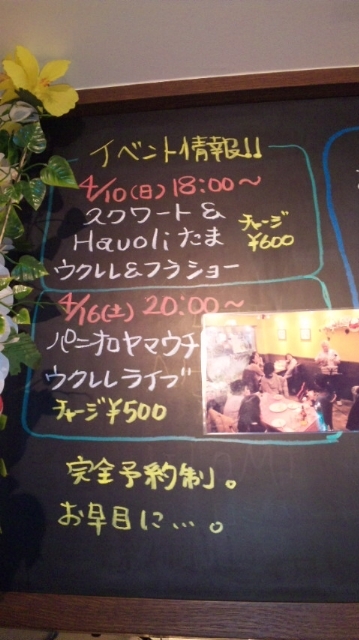 イベント情報!!
4/10(日)18:00〜
スクワート&
Hauoliたま
チャージ
¥600
ウクレレ&フラショー
4/16(土)20:00〜
パニオロヤマウチ
ウクレレライブ
チャージ¥500
完全予約制。
お早目に…。